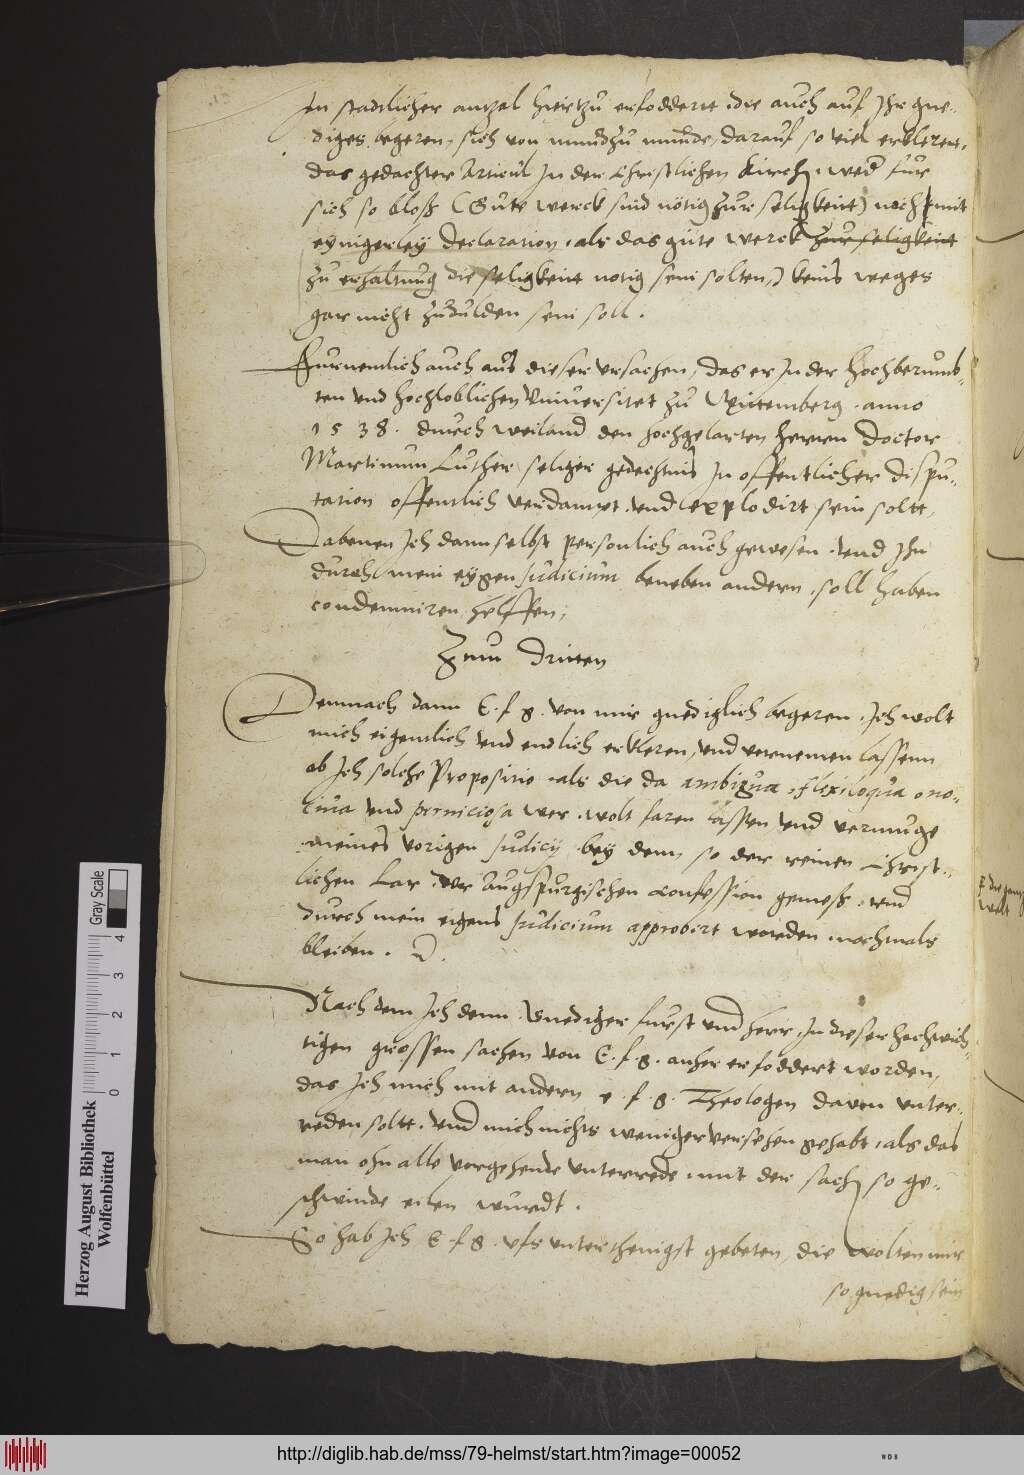 In stadtlicher antzal hiertzu erfoddertt die auch auf Ihr gne-
diges begeren, sich von mund zu munde, darauf so viel erklerent,
das gedachter Articul In der Christlichen Kirchen wed fur
sich so bloß (Gute werck sind nötig zur seligkeit) noch mit
eynigerley declaration, als das gute werck zur seligkeit
zu erhaltung die seligkeit notig sein solten,) keins weges
gar nicht zu dulden sein soll.
Furnemlich auch aus dieser ursachen, das er In der hochberumb-
ten und hochloblichen Universitet zu Wittemberg anno
1538. durch weiland den hochgelarten herren Doctor
Martinum Luther seliger gedechtnis In offentlicher dispu-
tation offentlich verdampt und explodirt sein solte,
Dabeneu Ich dann selbst personlich auch gewesen und Ihn
durch mein eygen Judicium beneben andern soll haben
condemniren helffen,
Zum dritten
Demnach dann E. f. g. von mir gnediglich begeren, Ich wolt
mich eigentlich und endlich erkleren, und vernemen lassenn
ob Ich solche Propositio als die da ambigua, flexiloqua, no-
civa und perniciosa wer, wolt faren lassen und vermuge
meines vorigen Judicij bey dem so der reinen Christ-
lichen Lar, der Augspurgischen Confession gemeß, und
durch mein eigens Judicium approbert worden, nochmals
bleiben.
Nach dem Ich denn Gnediger furst und herr, In dieser hochwich-
tigen grossen sachen von E. f. g. anher erfoddert worden,
das Ich mich mit andern e. f. g. Theologen davon unter-
reden solte, und mich nichts weniger versehen gehabt, als das
man ohn alle vorgehende unterrede mit der sach so ge-
schwinde eilen wurdt.
So hab Ich E. f. g. ufs unterthenigst gebeten, die wolten mir
so gnedig sein
die gantz
welt
Gray Scale
0 1 2 3 4
Herzog August Bibliothek
Wolfenbüttel
http://diglib.hab.de/mss/79-helmst/start.htm?image=00052